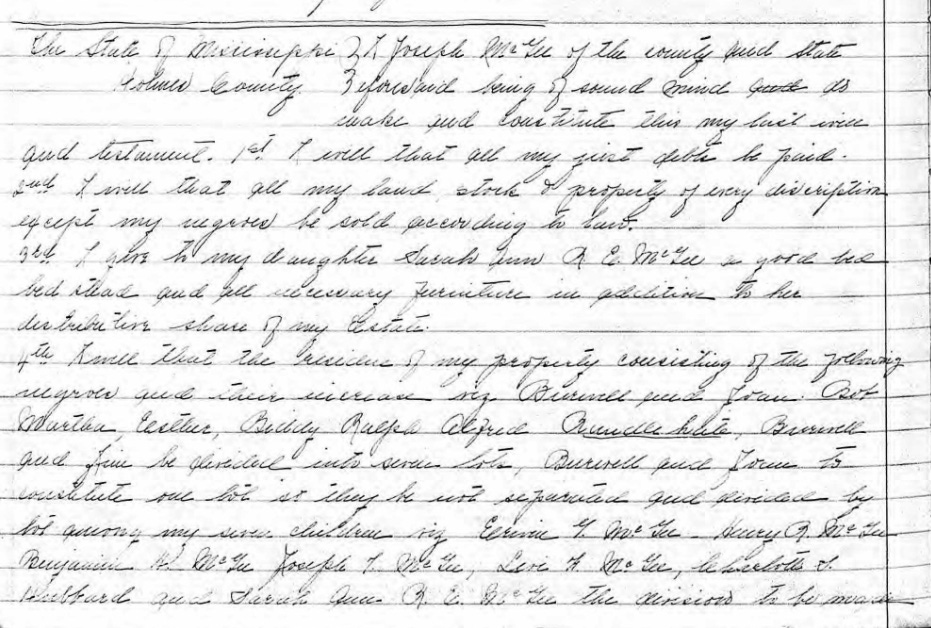 The State of Mississippi } I Joseph McGee of the county and State
Holmes County } aforesaid being of sound mind and do
make and constitute this my last will
and testament. 1st I will that all my just debts be paid.
2nd I will that all my land, stock & property of every discription
except my negroes be sold according to law.
3rd I give to my daughter Sarah Ann R. E. McGee a good bed
bed stead and all necessary furniture in addition to her
distributive share of my Estate.
4th I will that the residue of my property consisting of the following
negroes and their increase viz Burwell and Joan. Bob
Martha, Easther, Biddy Ralph Alfred Burwell
and Jim be divided into seven lots, Burwell and Joan to
constitute one lot so they be not separated and divided by
lot among my seven children viz McGee Henry R. McGee
Benjamin H. McGee Joseph T. McGee, Levi McGee, Charlotte S.
Hubbard and Sarah Ann R. E. McGee the division to be made